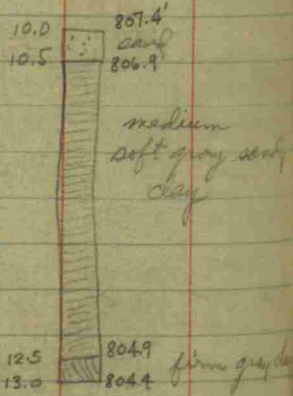 10.0 807.4'
sand
10.5 806.9
medium
soft gray sandy
clay
12.5 804.9
firm gray clay
13.0 804.4